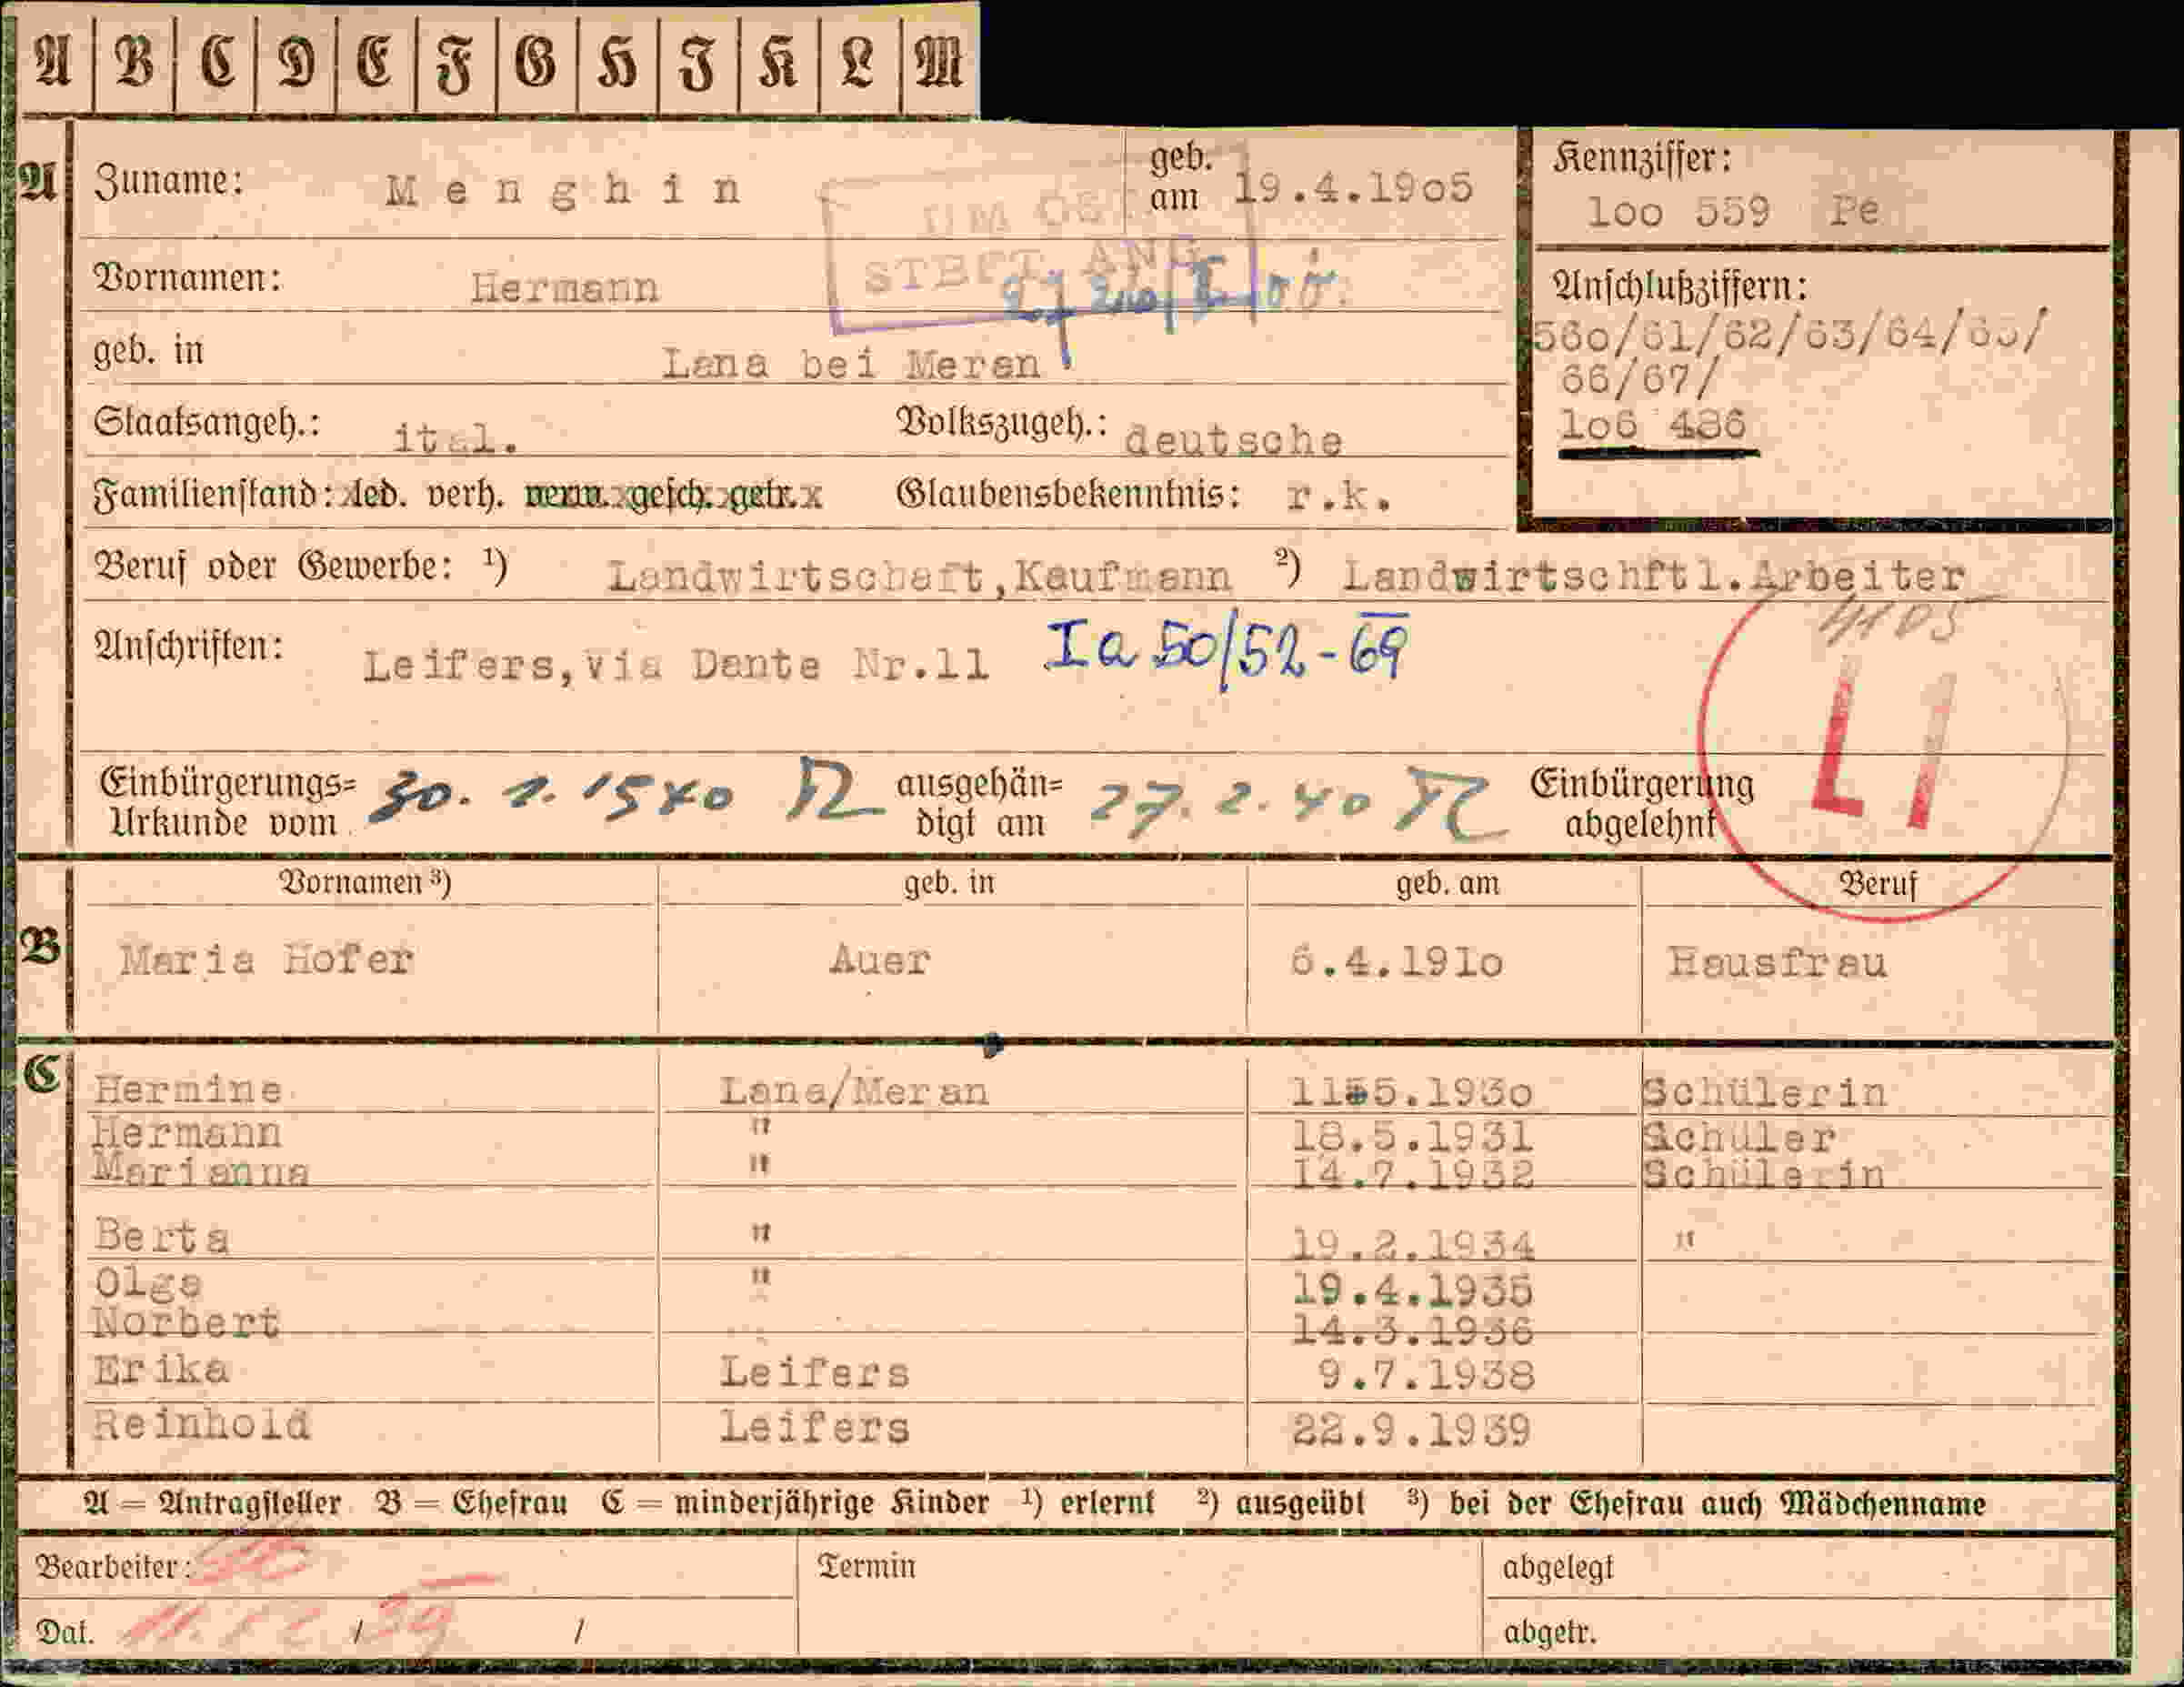 A B C D E F G H I K L M
A Zuname: Menghin geb. am 19.4.19o5 Kennziffer: loo 559 Pe
Vornamen: Hermann Anschlußziffern:
geb. in Lana bei Meran 560/61/62/63/64/65/
66/67/
Staatsangeh.: ital. Volkszugeh.: deutsche lo6 486
Familienstand: led. verh. verw. gesch. getr. Glaubensbekenntnis: r.k.
Beruf oder Gewerbe: ¹) Landwirtschaft,Kaufmann ²) Landwirtschftl.Arbeiter
Anschriften: Leifers,via Dante Nr.11 Ia 50/52-69
L 1
Einbürgerungs= Urkunde vom 30. 1. 1940 ausgehän= digt am 27. 2. 40 Einbürgerung abgelehnt
Vornamen ³) geb. in geb. am Beruf
B Maria Hofer Auer 6.4.191o Hausfrau
C Hermine Lana/Meran 11.5.193o Schülerin
Hermann " 18.5.1931 Schüler
Marianna " 14.7.1932 Schülerin
Berta " 19.2.1934 "
Olga " 19.4.1935
Norbert 14.3.1936
Erika Leifers 9.7.1938
Reinhold Leifers 22.9.1939
A = Antragsteller B = Ehefrau C = minderjährige Kinder ¹) erlernt ²) ausgeübt ³) bei der Ehefrau auch Mädchenname
Bearbeiter: Termin abgelegt
Dat. 11. 12 / 39 / abgetr.